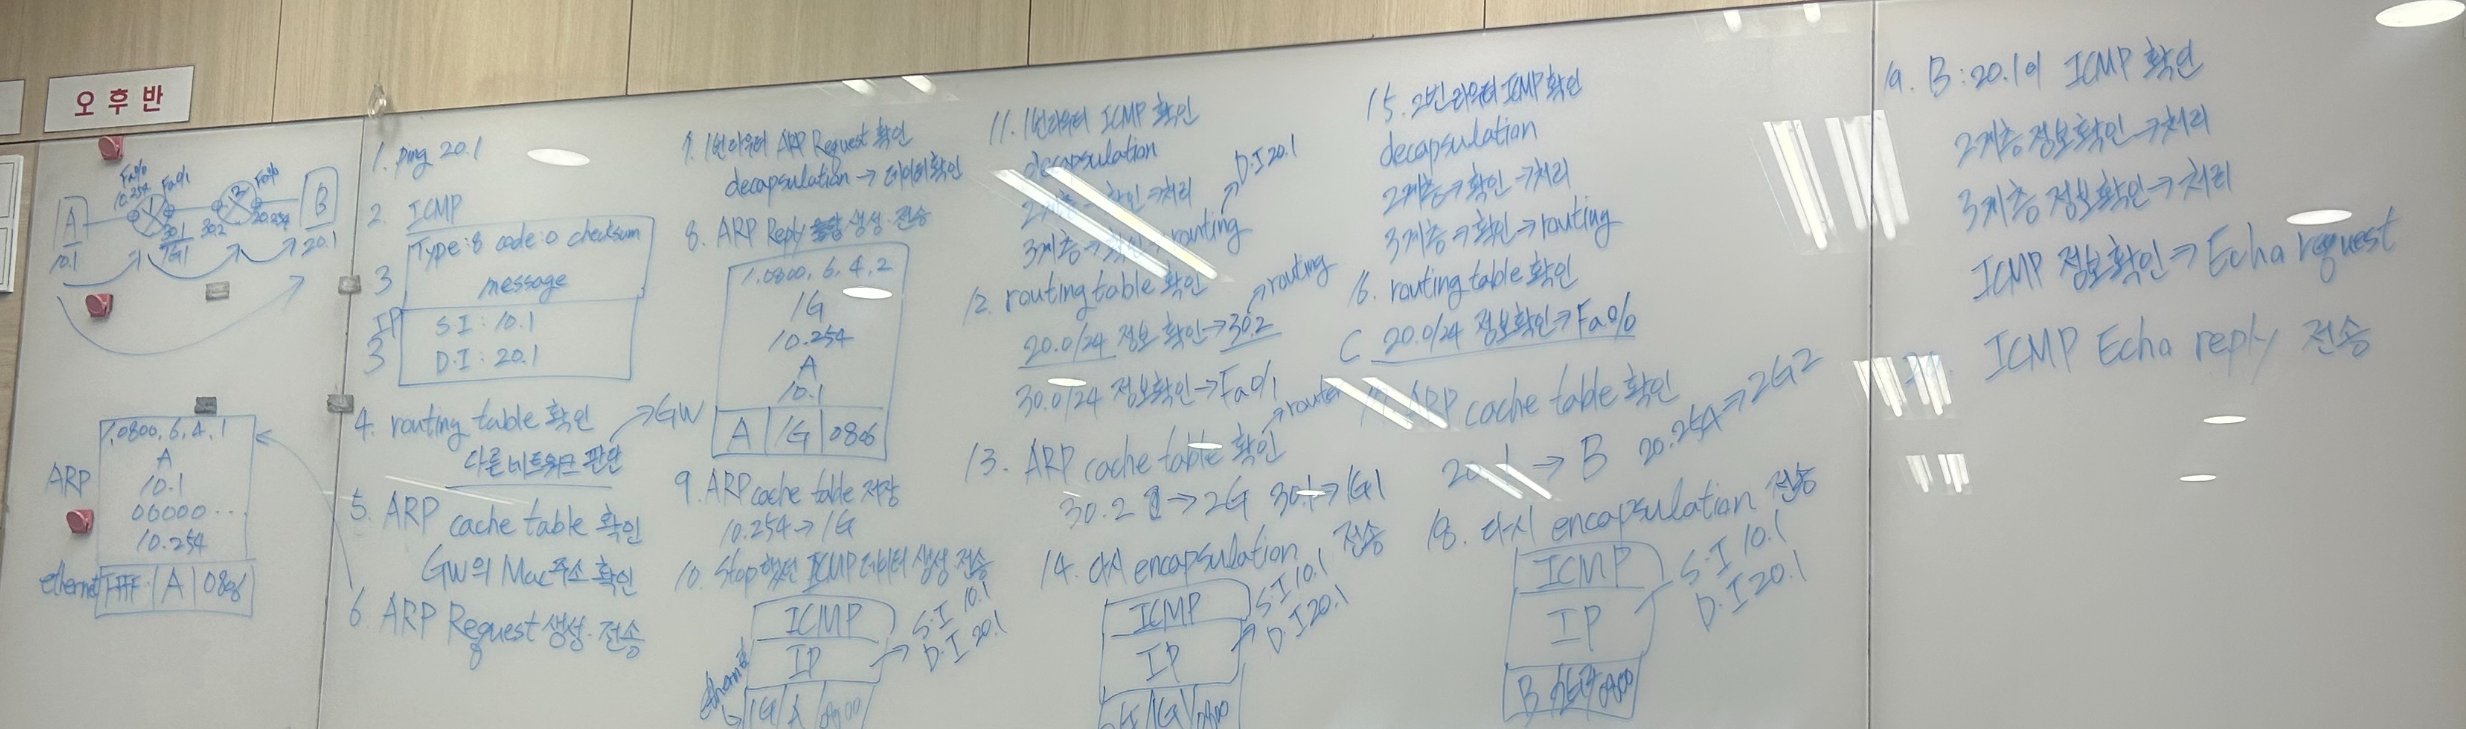 오후반
Fa0/0
10.254
Fa0/1
Fa0/0
A
1
2
B
10.1
30.1
1G1
30.2
20.254
20.1
1. ping 20.1
2. ICMP
Type:8 code:0 checksum
message
3
IP
3
S I : 10.1
D.I : 20.1
4. routing table 확인 → GW
다른 네트워크 판단
5. ARP cache table 확인
GW의 Mac주소 확인
6. ARP Request 생성·전송
ARP
1.0800.6.4.1
A
10.1
00000...
10.254
ethernet
FFF
A
0806
7. 1번라우터 ARP Request 확인
decapsulation → 데이터확인
8. ARP Reply 생성·전송
1.0800.6.4.2
1G
10.254
A
10.1
A
1G
0806
9. ARP cache table 저장
10.254 → 1G
10. Stop했던 ICMP 데이터 생성 전송
ICMP
IP
→ S.I 10.1
D.I 20.1
1G
A
0800
11. 1번라우터 ICMP 확인
decapsulation
2계층 → 확인 → 처리
3계층 → 확인 → routing → D.I 20.1
12. routing table 확인
20.0/24 정보 확인 → 30.2 → routing
30.0/24 정보확인 → Fa0/1
13. ARP cache table 확인 → router
30.2 → 2G 30.1 → 1G1
14. 다시 encapsulation 전송
ICMP
IP
→ S.I 10.1
D.I 20.1
0800
15. 2번 라우터 ICMP 확인
decapsulation
2계층 → 확인 → 처리
3계층 → 확인 → routing
16. routing table 확인
C 20.0/24 정보확인 → Fa0/0
17. ARP cache table 확인
20.1 → B 20.254 → 2G2
18. 다시 encapsulation 전송
ICMP
IP
S.I 10.1
D.I 20.1
B
0800
19. B : 20.1이 ICMP 확인
2계층 정보확인 → 처리
3계층 정보확인 → 처리
ICMP 정보확인 → Echo request
20. ICMP Echo reply 전송